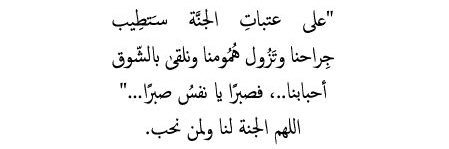 "على عتباتِ الجنَّة ستَطِيب
جِراحنا وتَزُول هُمُومنا ونلقىٰ بالشّوق
أحبابنا..، فصبرًا يا نفسُ صبرًا..."
اللهم الجنة لنا ولمن نحب.